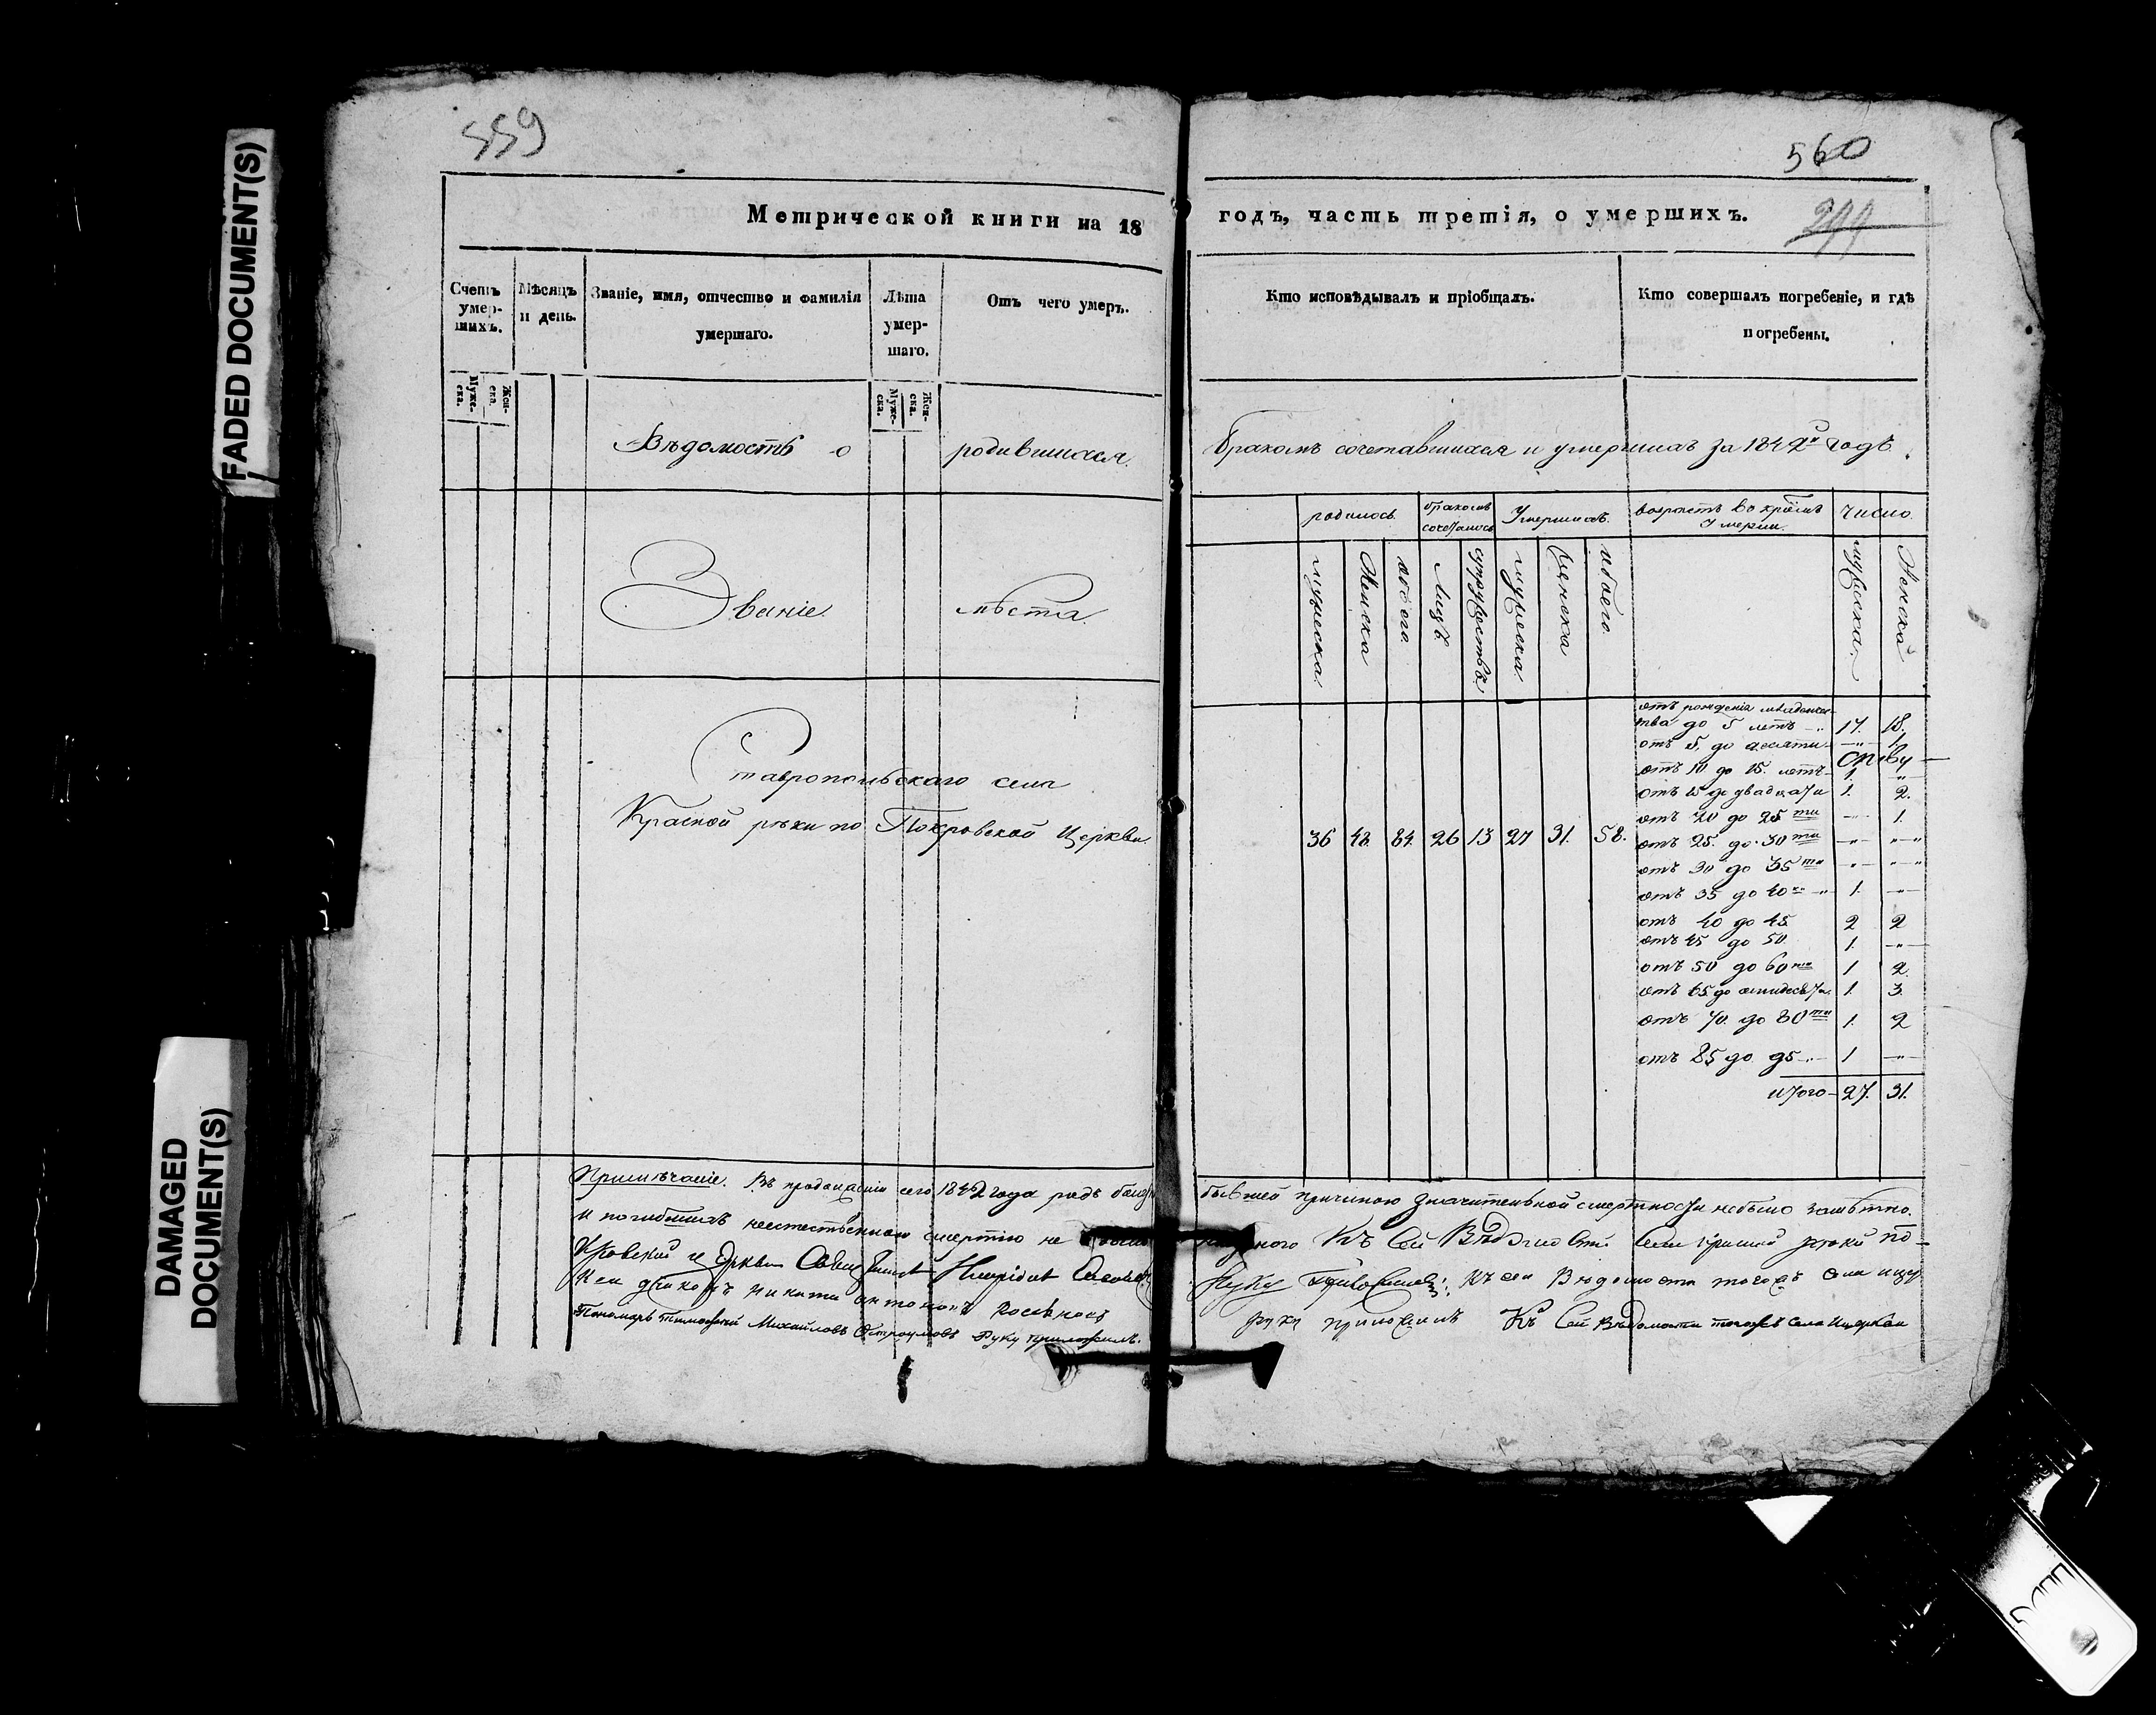 FADED DOCUMENT(S)
DAMAGED
DOCUMENT(S)
559
560
Метрической книги на 18
годъ, часть третія, о умершихъ.
Счетъ умер-шихъ.
Мѣсяцъ и день.
Званіе, имя, отчество и фамилія умершаго.
Лѣта умер-шаго.
Отъ чего умеръ.
Кто исповѣдывалъ и пріобщалъ.
Кто совершалъ погребеніе, и гдѣ погребены.
Муже-ска.
Жен-ска.
Муже-ска.
Жен-ска.
Вѣдомость о родившихся
бракомъ сочетавшихся и умершихъ за 1842й годъ.
Званіе мѣста
родилось
бракомъ сочеталось
Умершихъ
возрастъ во кремъ Умерли
число
мужеска
Женска
обоего
Лицъ
супружествъ
мужеска
женска
обоего
мужеска
Женска
Ставропольскаго села
Красной рѣки по Покровской Церкви
36 48. 84. 26 13 27 31. 58.
отъ рожденія младенчес-
тва до 5 летъ 17. 18.
отъ 5. до десяти - " - 1.
отъ 10 до 15. летъ 1. "
отъ 15 до двадцати 1. 2.
отъ 20 до 25 ти - 1.
отъ 25. до 30 ти - " - " - "
отъ 30 до 35 ти - " - " - "
отъ 35 до 40 1. - " -
отъ 40 до 45 2 2
отъ 45 до 50 1. - " -
отъ 50 до 60 ти 1 2
отъ 65 до семидесяти 1. 3.
отъ 70 до 80 ти 1. 2
отъ 85 до 95 1 - " -
итого 27. 31.
Примѣчаніе. Въ продолженіи сего 1842 года родъ
бывшей причиною значительной смертности небыло замѣтно.
и погибшихъ неестественною смертію не
Къ Сей Вѣдомости села Красной рѣки по-
кровской церкви
руку приложилъ. Къ сей Вѣдомости тогожъ села цер
кви дьячокъ Никита Антоновъ
руку приложилъ Къ Сей Вѣдомости тогожъ Села Церкви
Пономарь Тимофей Михайловъ Остроумовъ Руку приложилъ.